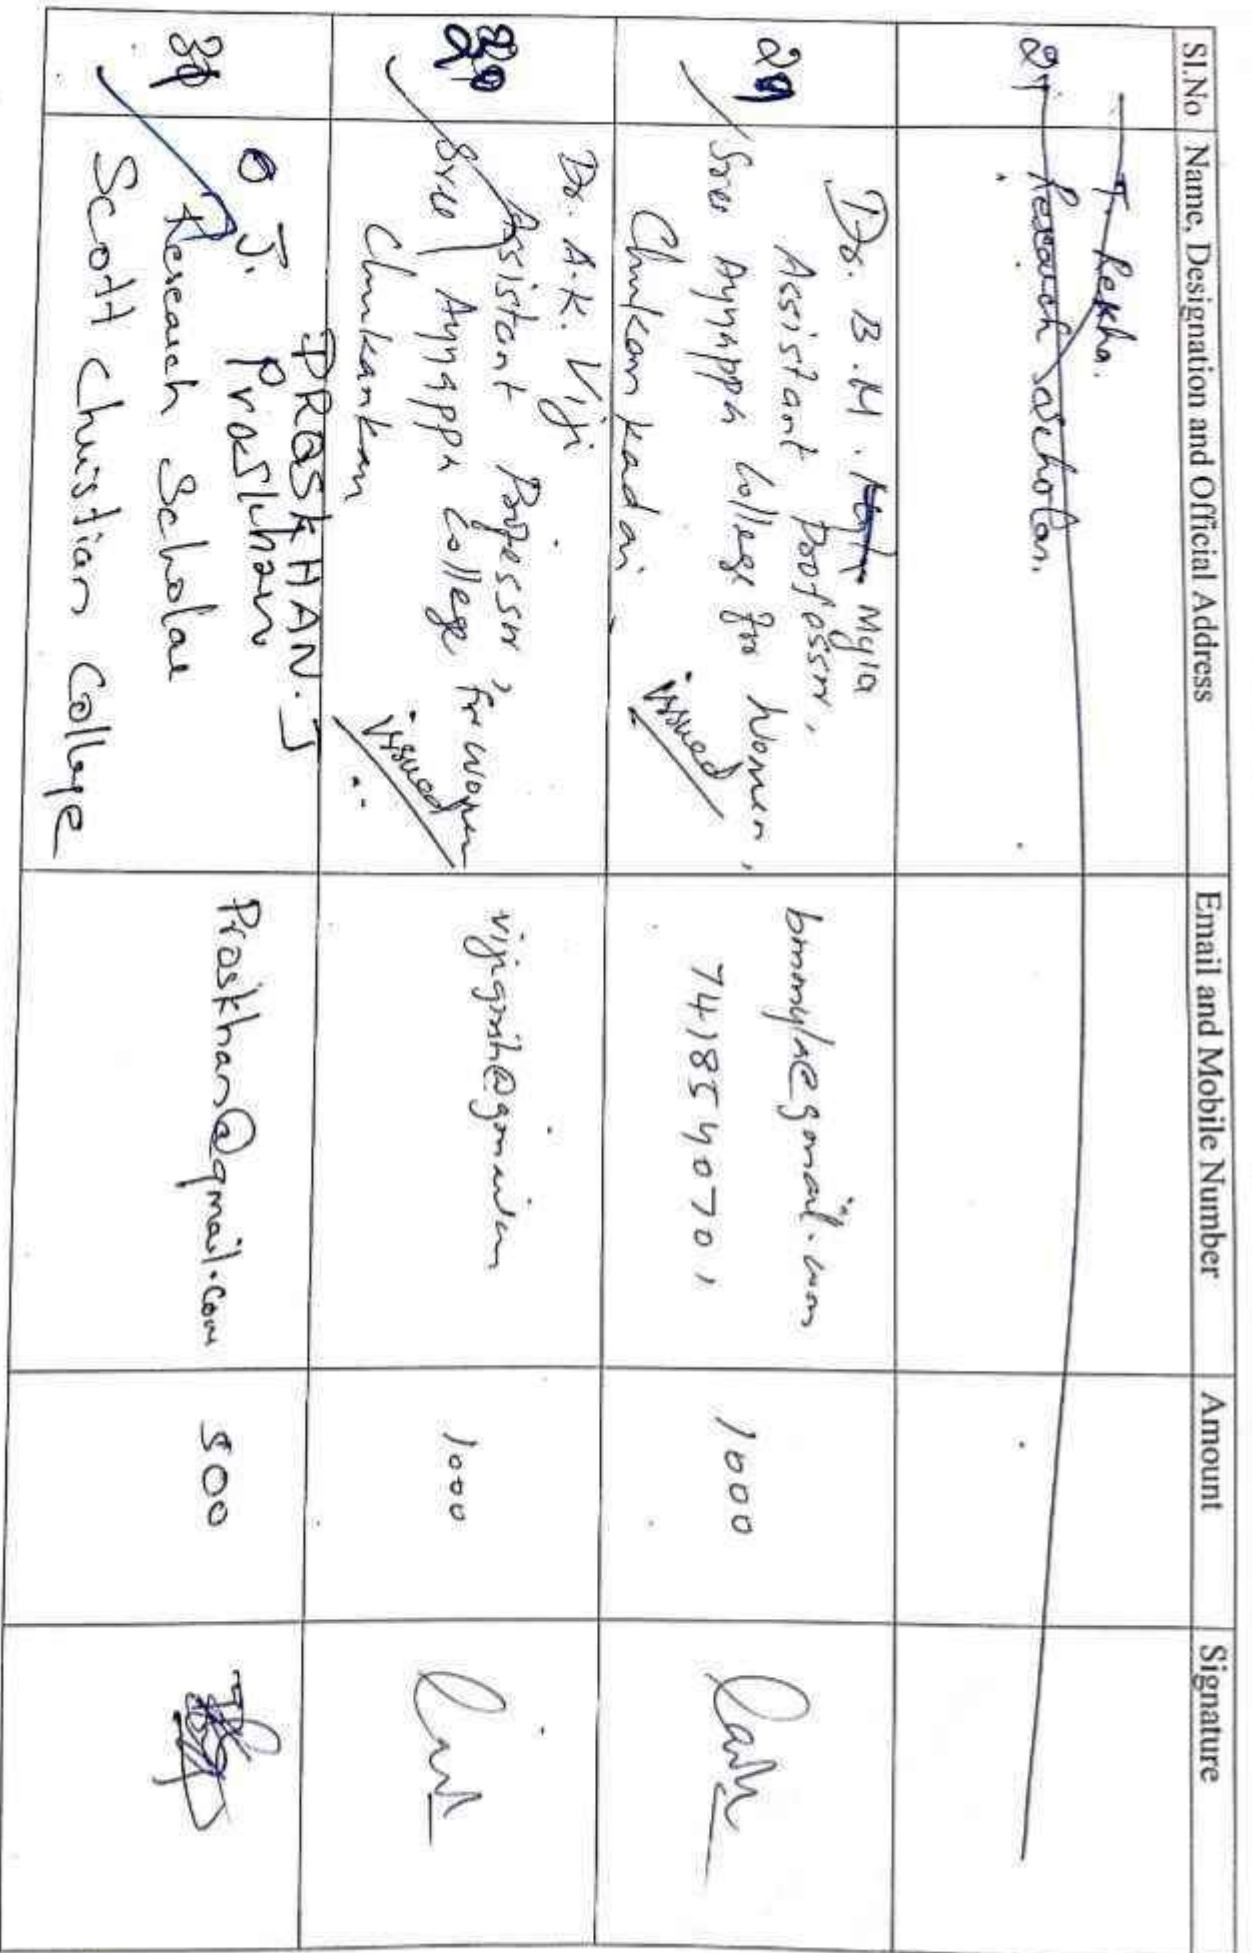 Sl.No Name, Designation and Official Address Email and Mobile Number Amount Signature
T. Rekha.
Research Scholar.
29
Dr. B.M. Myla
Assistant Professor,
Sree Ayyappa College for Women,
Chunkankadai
issued
bmmyla@gmail.com
7418540701
1000
30
Dr. A.K. Viji
Assistant Professor,
Sree Ayyappa College for Women
Chunkankan
issued
1000
PRASKHAN.J
J. Praskhan
Research Scholar
Scott Christian College
Praskhan@gmail.com
500